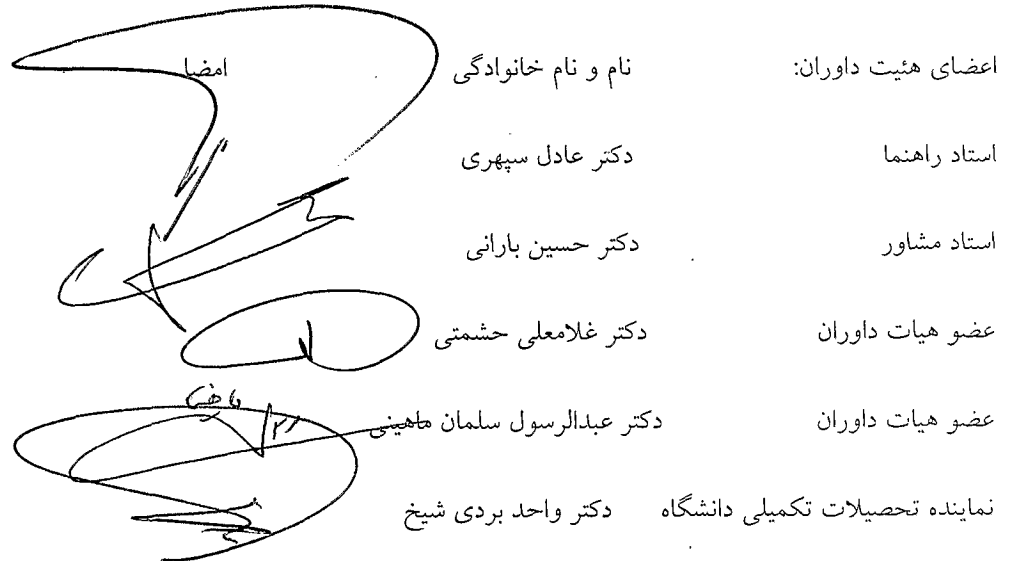 اعضای هئیت داوران: نام و نام خانوادگی امضا
استاد راهنما دکتر عادل سپهری
استاد مشاور دکتر حسین بارانی
عضو هیات داوران دکتر غلامعلی حشمتی
عضو هیات داوران دکتر عبدالرسول سلمان ماهینی
نماینده تحصیلات تکمیلی دانشگاه دکتر واحد بردی شیخ